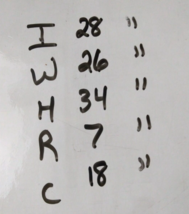 I 28 "
W 26 "
H 34 "
R 7 "
C 18 "